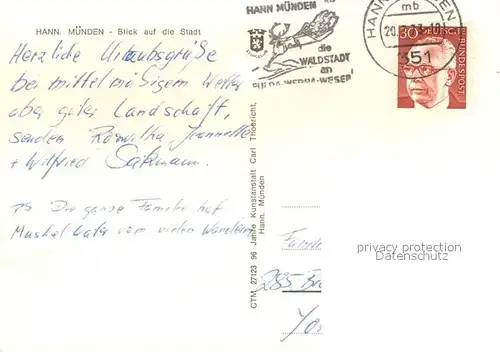 HANN. MÜNDEN - Blick auf die Stadt
Herzliche Urlaubsgrüße
bei mittelmäsigem Wetter
aber guter Landschaft,
senden Roswitha, Jeannette
+ Wilfried
PS Die ganze Familie hat
Muskel Kater vom vielen Wandern
HANN MÜNDEN
die
WALDSTADT
an
FULDA-WERRA-WESER
HANN
mb
20.
351
30
DEUTSCHE
BUNDESPOST
CTM 27123 96 Jahre Kunstanstalt Carl Thoericht,
Hann. Münden
285
privacy protection
Datenschutz